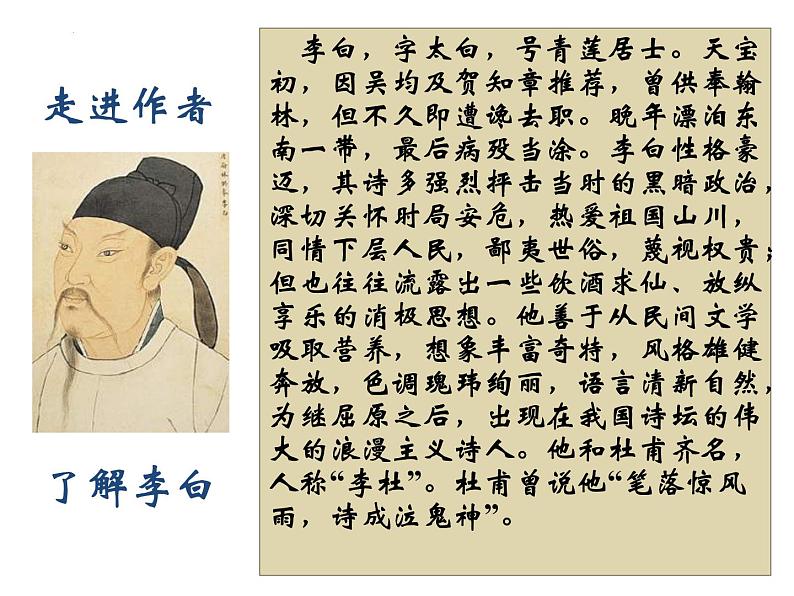 走进作者
了解李白
李白，字太白，号青莲居士。天宝
初，因吴均及贺知章推荐，曾供奉翰
林，但不久即遭谗去职。晚年漂泊东
南一带，最后病殁当涂。李白性格豪
迈，其诗多强烈抨击当时的黑暗政治，
深切关怀时局安危，热爱祖国山川，
同情下层人民，鄙夷世俗，蔑视权贵；
但也往往流露出一些饮酒求仙、放纵
享乐的消极思想。他善于从民间文学
吸取营养，想象丰富奇特，风格雄健
奔放，色调瑰玮绚丽，语言清新自然，
为继屈原之后，出现在我国诗坛的伟
大的浪漫主义诗人。他和杜甫齐名，
人称“李杜”。杜甫曾说他“笔落惊风
雨，诗成泣鬼神”。